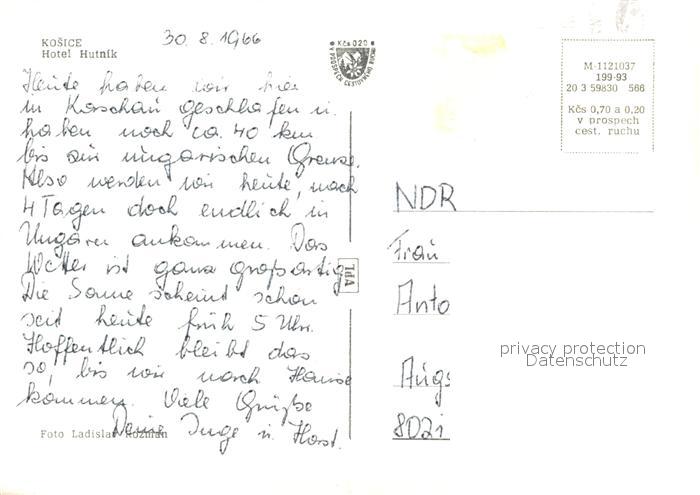 KOŠICE
Hotel Hutník
30. 8. 1966
Heute haben wir hier
in Kaschau geschlafen u.
haben noch ca. 40 km
bis zur ungarischen Grenze.
Also werden wir heute, nach
4 Tagen doch endlich in
Ungarn ankommen. Das
Wetter ist ganz großartig.
Die Sonne scheint schon
seit heute früh 5 Uhr.
Hoffentlich bleibt das
so, bis wir nach Hause
kommen. Viele Grüße
Deine Inge u. Horst.
Foto Ladislav Rozman
Kčs 0,20
V PROSPECH CESTOVNÉHO RUCHU
TdA
M-1121037
199-93
20 3 59830 566
Kčs 0,70 a 0,20
v prospech
cest. ruchu
NDR
Frau
Anto
Augs
8021
privacy protection
Datenschutz